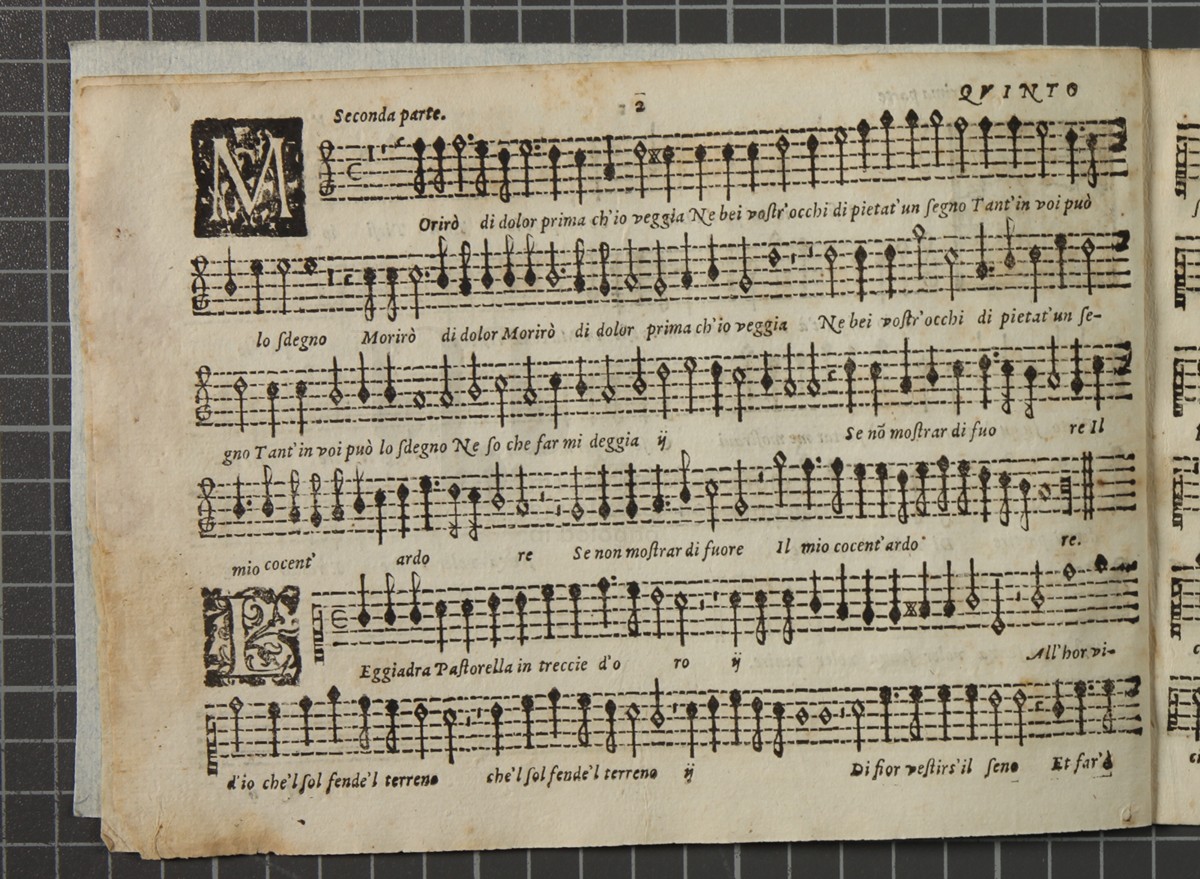 Seconda parte. 2 QVINTO
MOrirò di dolor prima ch'io veggia Ne bei vostr'occhi di pietat'un segno Tant'in voi può
lo sdegno Morirò di dolor Morirò di dolor prima ch'io veggia Ne bei vostr'occhi di pietat'un se-
gno Tant'in voi può lo sdegno Ne so che far mi deggia ij Se nõ mostrar di fuo re Il
mio cocent' ardo re Se non mostrar di fuore Il mio cocent'ardo re.
LEggiadra Pastorella in treccie d'o ro ij All'hor vi-
d'io che'l sol fende'l terreno che'l sol fende'l terreno ij Di fior vestirs'il seno Et far'